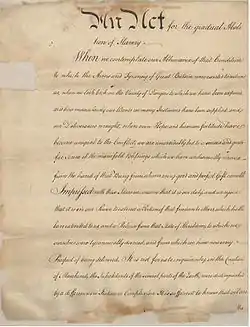 An Act for the gradual Abolition
tion of Slavery
When we contemplate our Abhorrence of that Condition
to which the Arms and Tyranny of Great Britain were exerted to reduce
us, when we look back on the Variety of Dangers to which we have been exposed
and how miraculously our Wants in many Instances have been supplied and
our Deliverances wrought, when even Hope and human fortitude have
become unequal to the Conflict, we are unavoidably led to a serious and grate
ful Sense of the manifold Blessings which we have undeservedly received
from the hand of that Being from whom every good and perfect Gift cometh
Impressed with these Ideas we conceive that it is our duty, and rejoice
that it is in our Power, to extend a Portion of that freedom to others, which hath
been extended to us, and a Release from that State of Thraldom, to which we
ourselves were tyrannically doomed, and from which we have now every
Prospect of being delivered. It is not for us to enquire, why, in the Creation
of Mankind, the Inhabitants of the several parts of the Earth, were distinguished
by a difference in Feature or Complexion. It is sufficient to know that all are